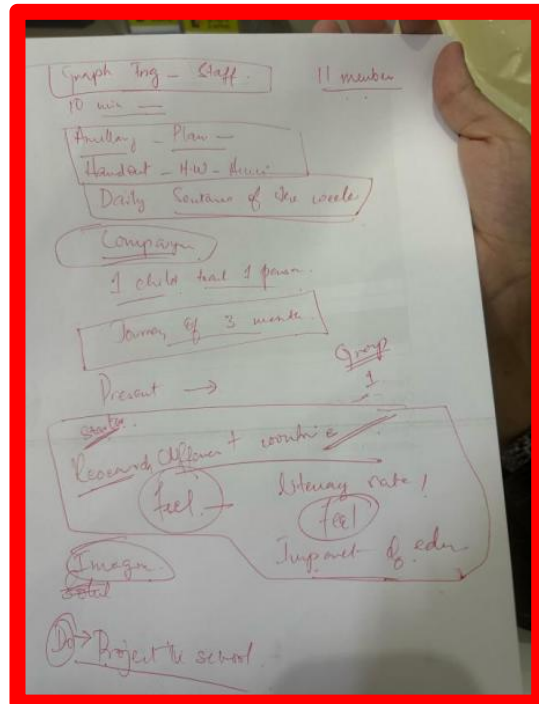 Graph Trg - Staff. 11 member
10 min —
Ancillary - Plan —
Handout - H.W -
Daily Sentence of the week
Campaign
1 child teach 1 person.
Journey of 3 month
Present → Group
1
Research Different countrie
feel - literacy rate!
feel
Imagin. of edu
Do → Project the school.